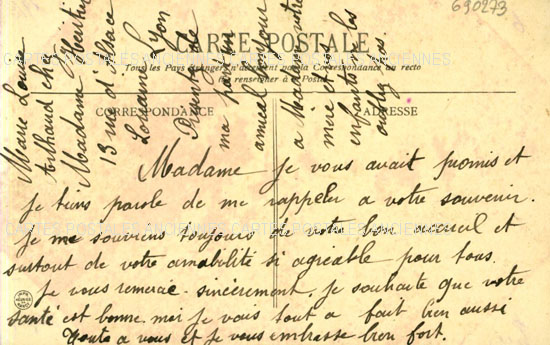 690273
CARTE POSTALE
Tous les Pays étrangers n'acceptent pas la Correspondance au recto
se renseigner à la Poste
CORRESPONDANCE
ADRESSE
Madame je vous avait promis et
je tiens parole de me rappeler a votre souvenir.
je me souviens toujours de votre bon accueil et
surtout de votre amabilité si agréable pour tous.
je vous remercie sincèrement, je souhaite que votre
santé est bonne moi je vais tout a fait bien aussi
toute a vous et je vous embrasse bien fort.
Marie Louise
chez
Madame
13 rue d'Alsace
Lorraine Lyon
de
ma part un
amical bonjour
a Madame votre
mère et les
enfants ne les
oubliez pas.
CARTES POSTALES ANCIENNES